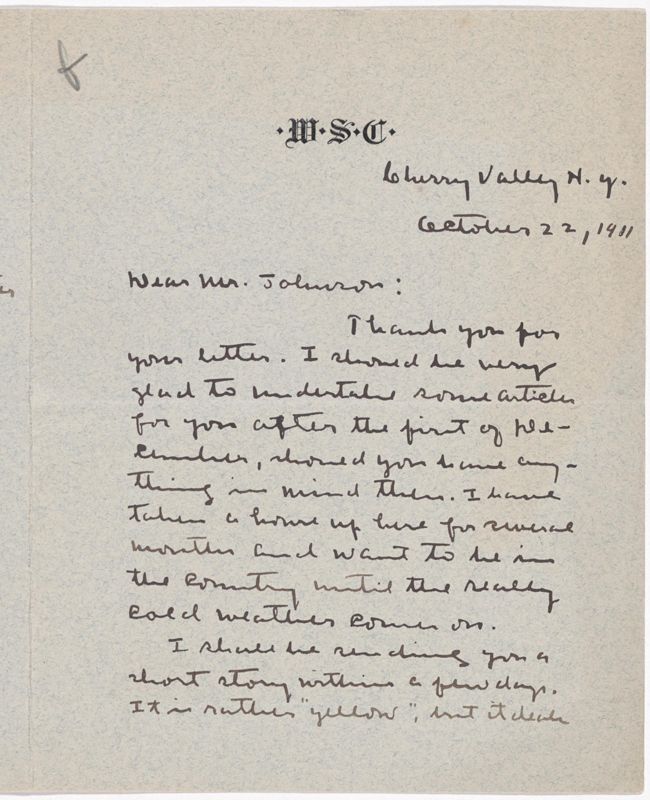 ·W·S·C·
Cherry Valley N. Y.
October 22, 1911
Dear Mr. Johnson:
Thank you for
your letter. I should be very
glad to undertake some articles
for you after the first of De-
cember, should you have any-
thing in mind then. I have
taken a house up here for several
months and want to be in
the country until the really
cold weather comes on.
I shall be sending you a
short story within a few days.
It is rather "yellow", but it deals